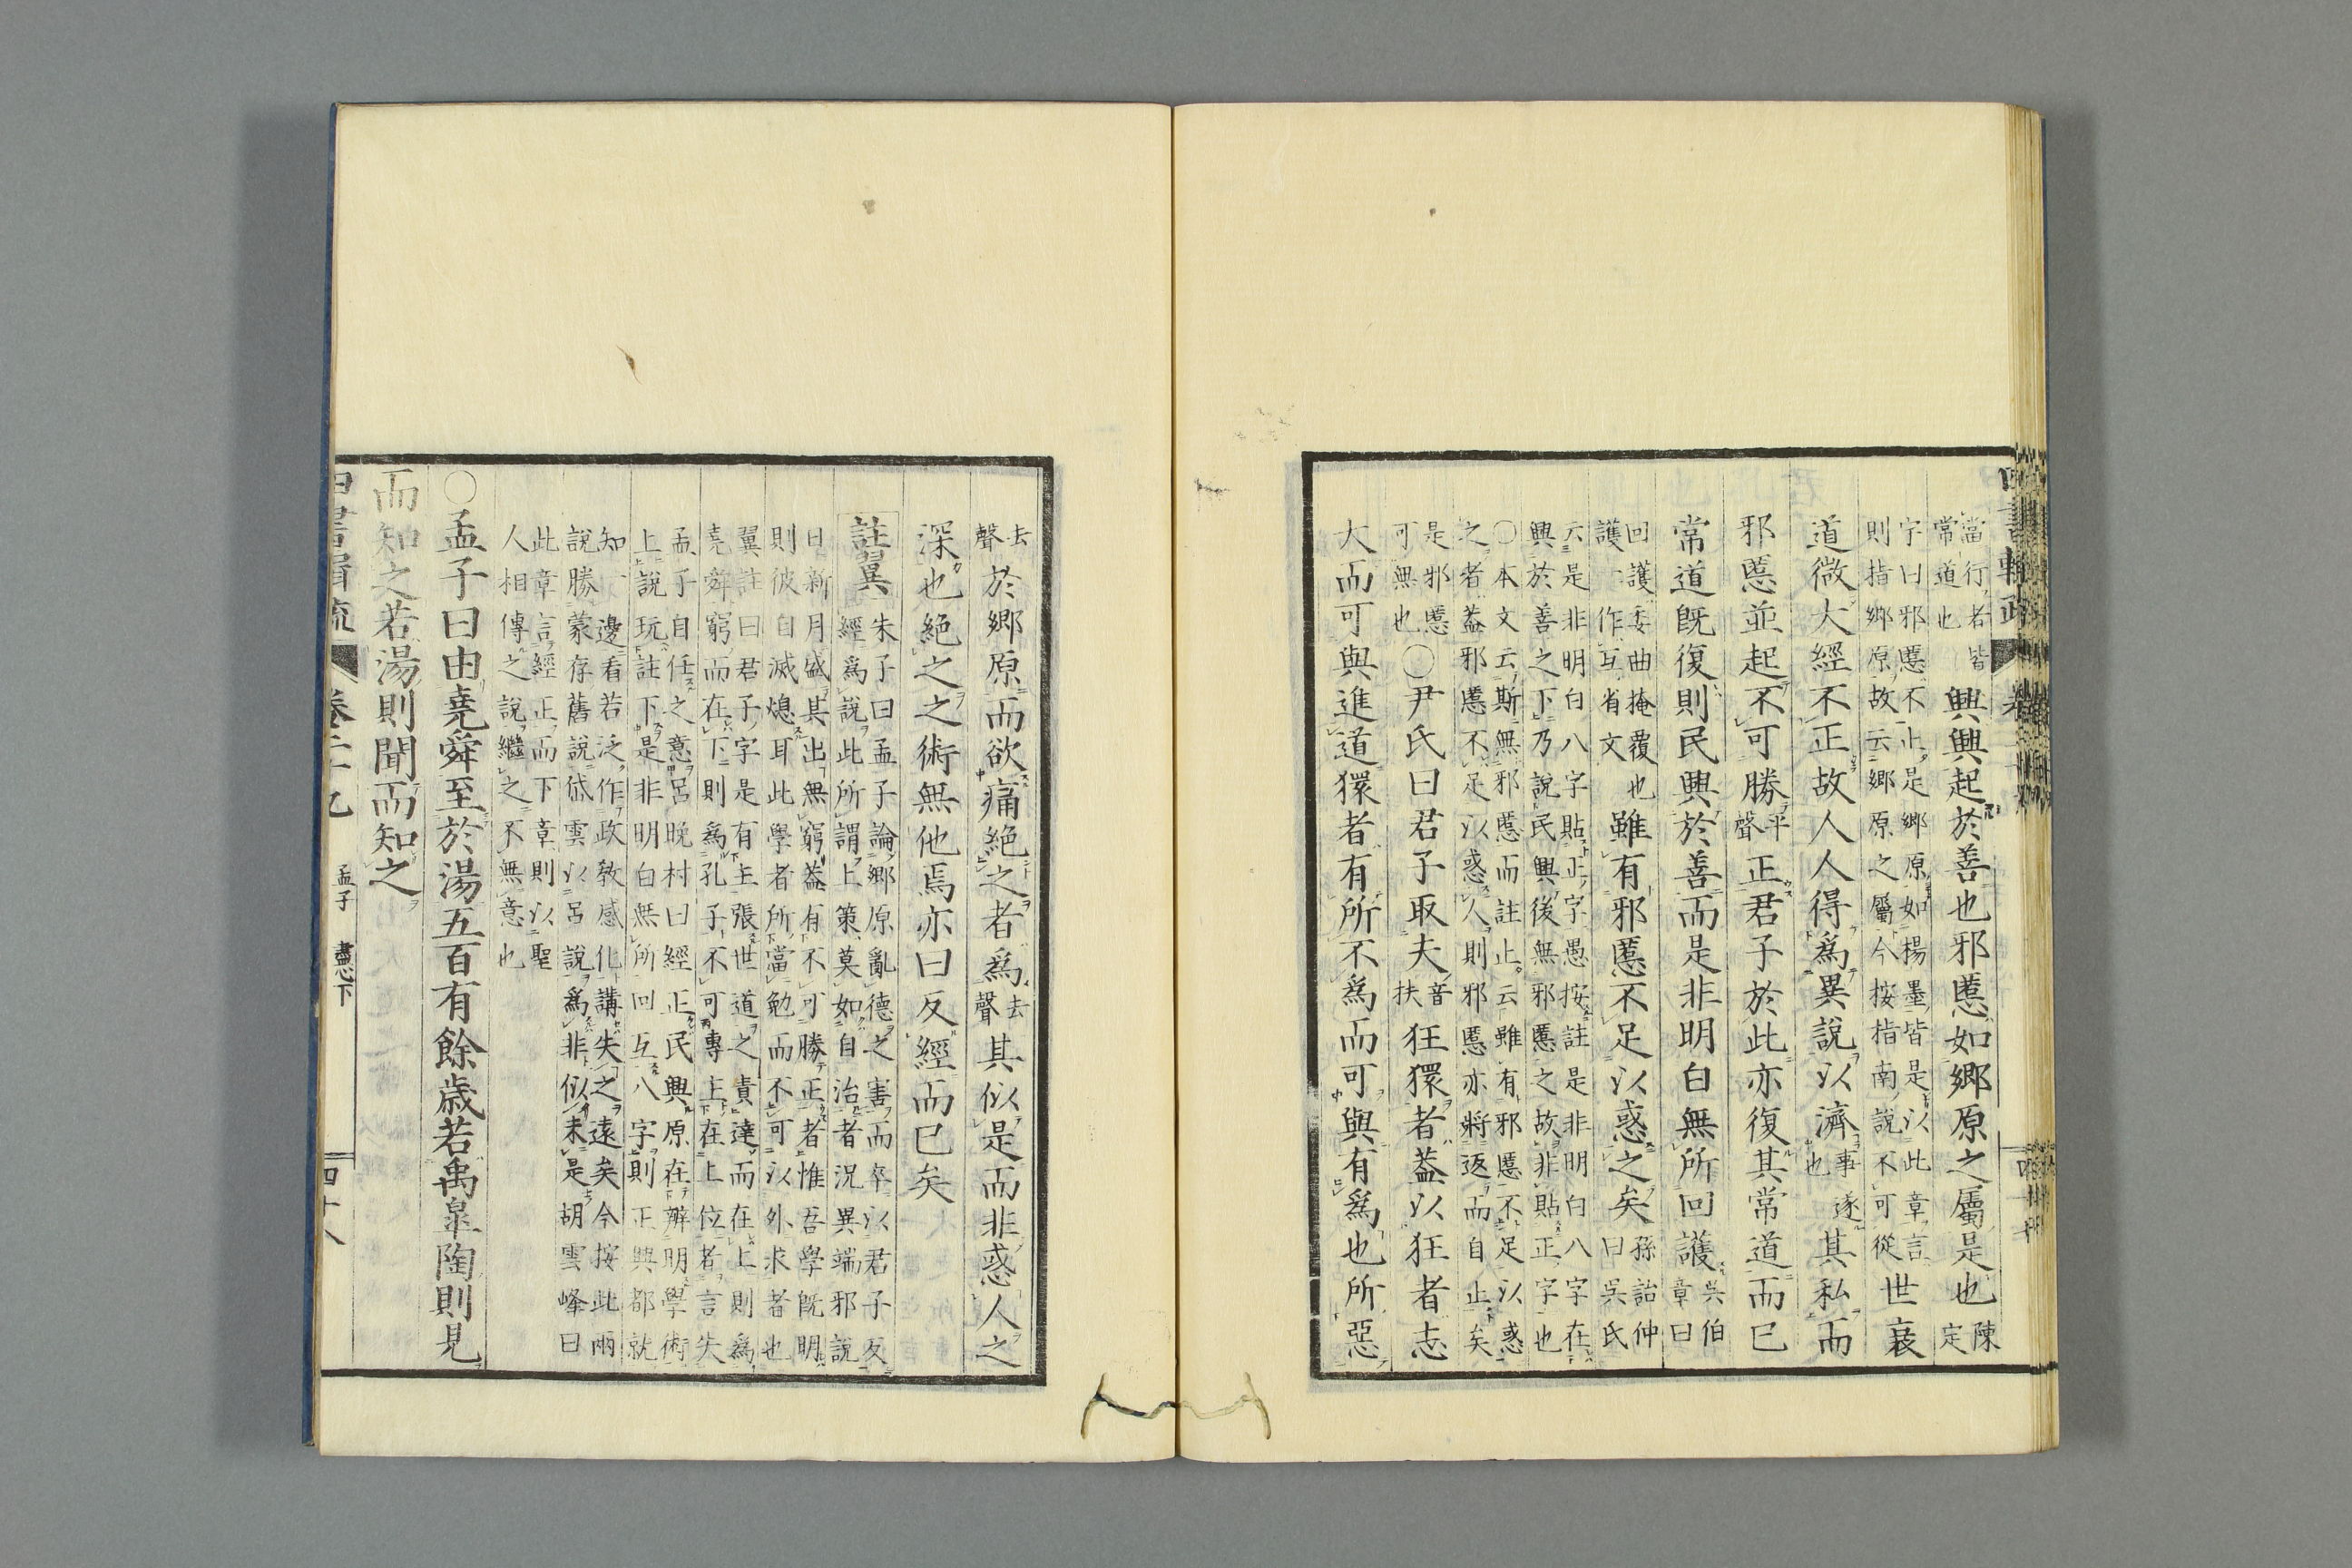 當行者皆
常道也
興興起於善也邪慝如鄉原之屬是也
陳
定
字曰邪慝不止是鄉原如楊墨皆是以此章言
則指鄉原故云鄉原之屬今按指南說不可從
世衰
道微大經不正故人人得爲異說以濟
事
也
遂其私而
邪慝並起不可勝
平
聲
正君子於此亦復其常道而已
常道既復則民興於善而是非明白無所回護
吳伯
章曰
回護委曲掩覆也
護一作互省文
雖有邪慝不足以惑之矣
孫詒仲
曰吳氏
云是非明白八字貼正字愚按註是非明白八字在
興於善之下乃說民興後無邪慝之故非貼正字也
○本文云斯無邪慝而註止云雖有邪慝不足以惑
之者蓋邪慝不足以惑人則邪慝亦將返而自止矣
是邪慝
可無也
○尹氏曰君子取夫
音
扶
狂獧者蓋以狂者志
大而可與進道獧者有所不爲而可與有爲也所惡
去
聲
於鄉原而欲痛絕之者爲
去
聲
其似是而非惑人之
深也絕之之術無他焉亦曰反經而已矣
註翼
朱子曰孟子論鄉原亂德之害而卒以君子反
經爲說此所謂上策莫如自治者況異端邪說
日新月盛其出無窮蓋有不可勝正者惟吾學既明
則彼自滅熄耳此學者所當勉而不可以外求者也
翼註曰君子字是有主張世道之責達而在上則爲
堯舜窮而在下則爲孔子不可專上在上位者言失
孟子自任之意呂晚村曰經正民興原在辨明學術
上說玩註下是非明白無所回互八字則正興都就
知一邊看若泛作政教感化講失之遠矣今按此兩
說勝蒙存舊說倂雲以呂說爲非似未是胡雲峰曰
此章言經正而下章則以聖
人相傳之說繼之不無意也
○孟子曰由堯舜至於湯五百有餘歲若禹皐陶則見
而知之若湯則聞而知之
卷二十九
孟子
盡心下
四十八